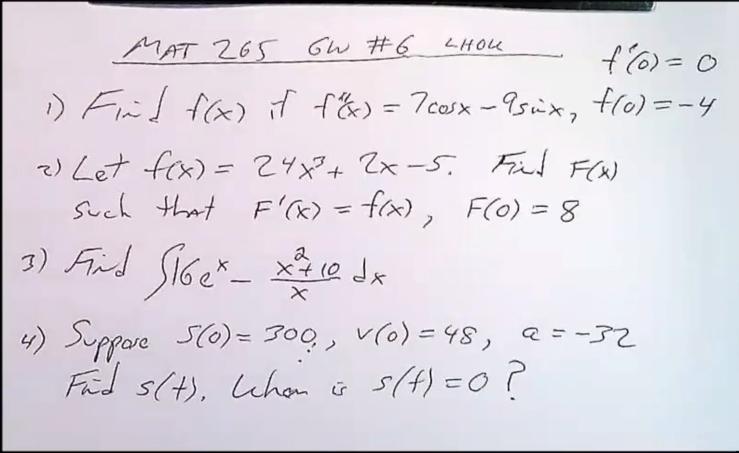 MAT 265 GW #6 LHOU
f'(0) = 0
1) Find f(x) if f"(x) = 7cosx - 9sinx, f(0) = -4
2) Let f(x) = 24x³ + 2x - 5. Find F(x)
such that F'(x) = f(x), F(0) = 8
3) Find ∫16eˣ - (x²+10)/x dx
4) Suppose S(0) = 300, v(0) = 48, a = -32
Find s(t). When is s(t) = 0?